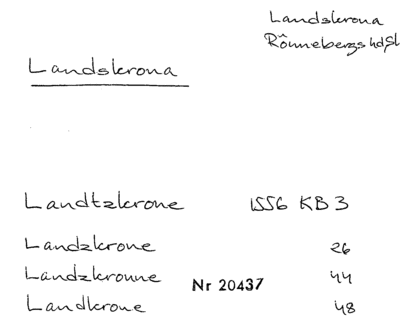 Landskrona
Rönnebergs hd, Sk
Landskrona
Landtzkrone 1556 KB 3
Landzkrone 26
Landzkronne 44
Nr 20437
Landkrone 48